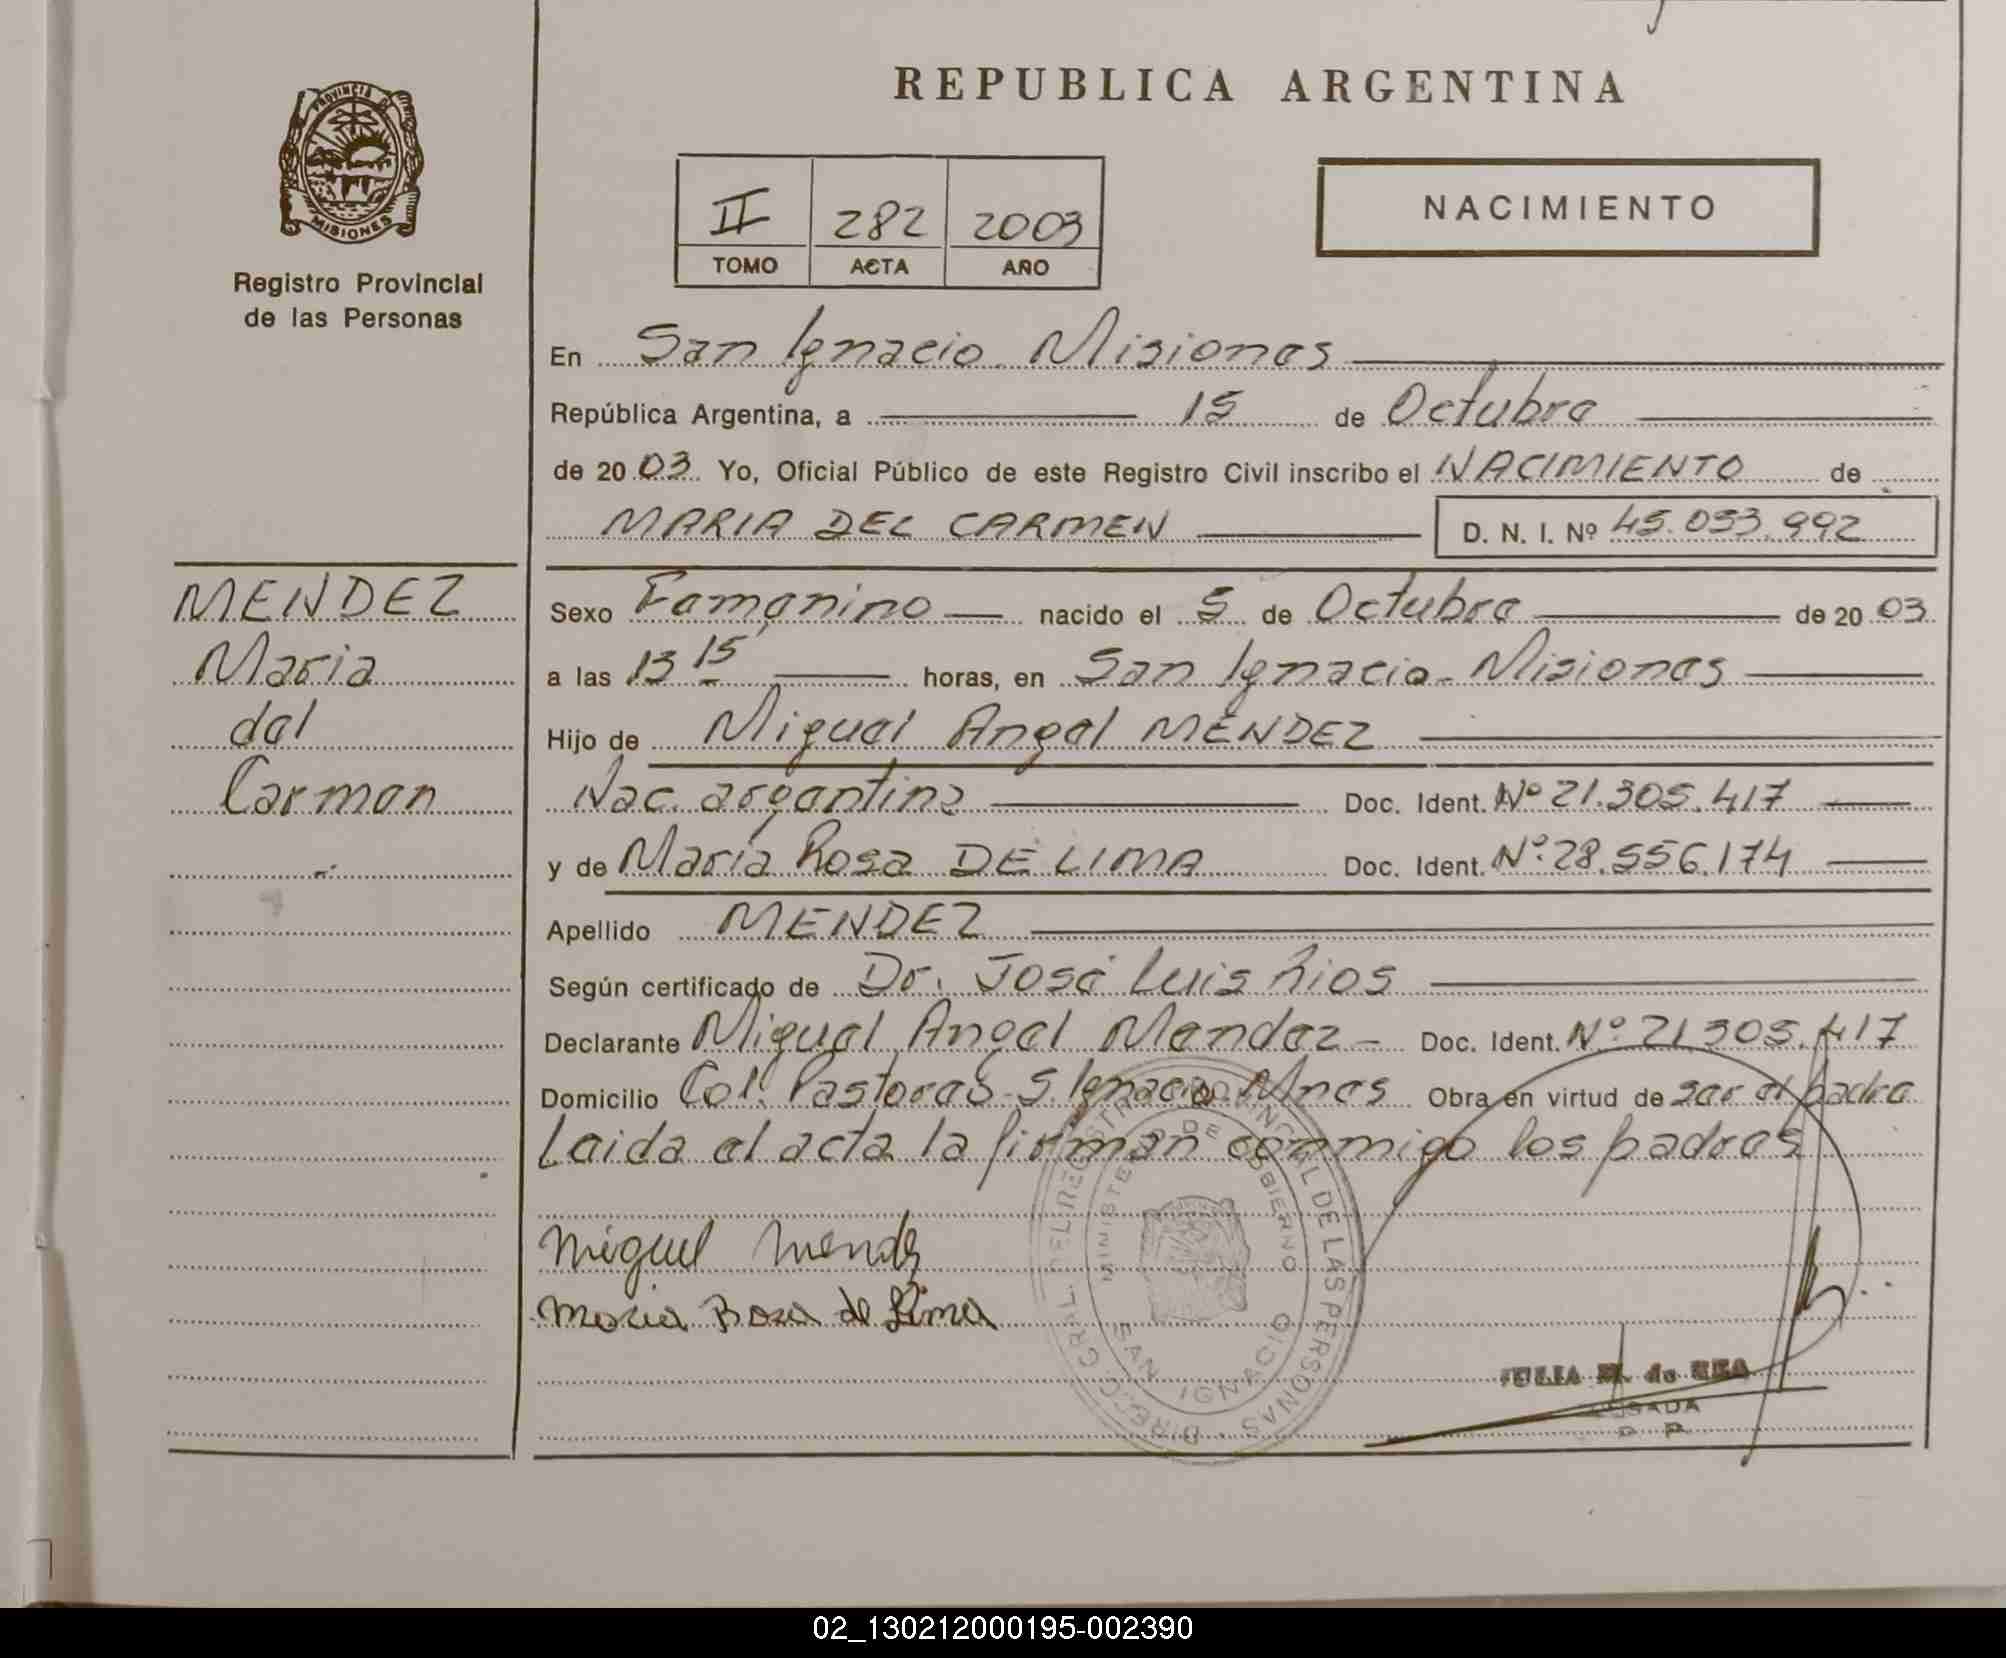 REPUBLICA ARGENTINA
PROVINCIA DE
MISIONES
Registro Provincial
de las Personas
II 282 2003
TOMO ACTA AÑO
NACIMIENTO
En San Ignacio Misiones
República Argentina, a 15 de Octubre
de 2003 Yo, Oficial Público de este Registro Civil inscribo el NACIMIENTO de
MARIA DEL CARMEN D. N. I. Nº 45.053.992
MENDEZ
Maria
del
Carmen
Sexo Femenino nacido el 5 de Octubre de 20 03
a las 13 15' horas, en San Ignacio - Misiones
Hijo de Miguel Angel MENDEZ
Nac. argentina Doc. Ident. Nº 21.305.417
y de María Rosa DE LIMA Doc. Ident. Nº 28.556.174
Apellido MENDEZ
Según certificado de Dr. José Luis Rios
Declarante Miguel Angel Mendez - Doc. Ident. Nº 21.305.417
Domicilio Col. Pastoreo - S. Ignacio Mnes Obra en virtud de ser el padre
Leida el acta la firman conmigo los padres
Miguel Mendez
Maria Rosa de Lima
DIRECC. GRAL. DEL REGISTRO PROVINCIAL DE LAS PERSONAS
MINISTERIO DE GOBIERNO
SAN IGNACIO
JULIA M. de REA
02_130212000195-002390